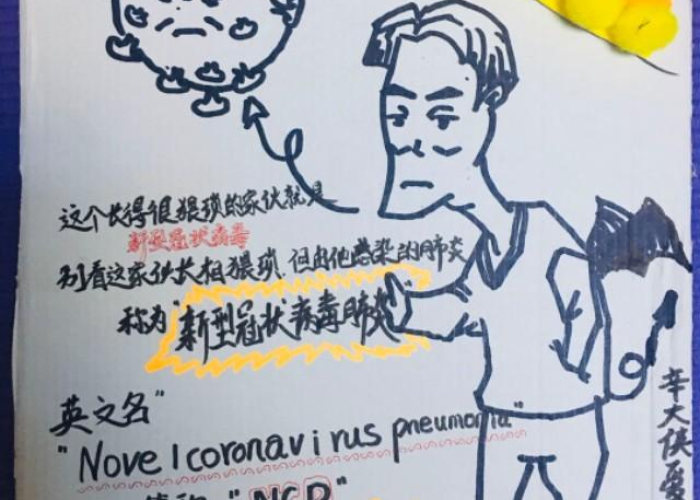 这个长得很猥琐的家伙就是
新型冠状病毒
别看这家伙长相猥琐,但由他感染的肺炎
称为"新型冠状病毒肺炎"
英文名"
"Novel coronavirus pneumonia"
简称 "NCP"
辛大侠爱